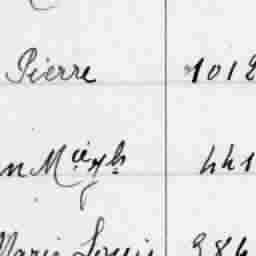 Pierre 1012
441
Marie Louis 384